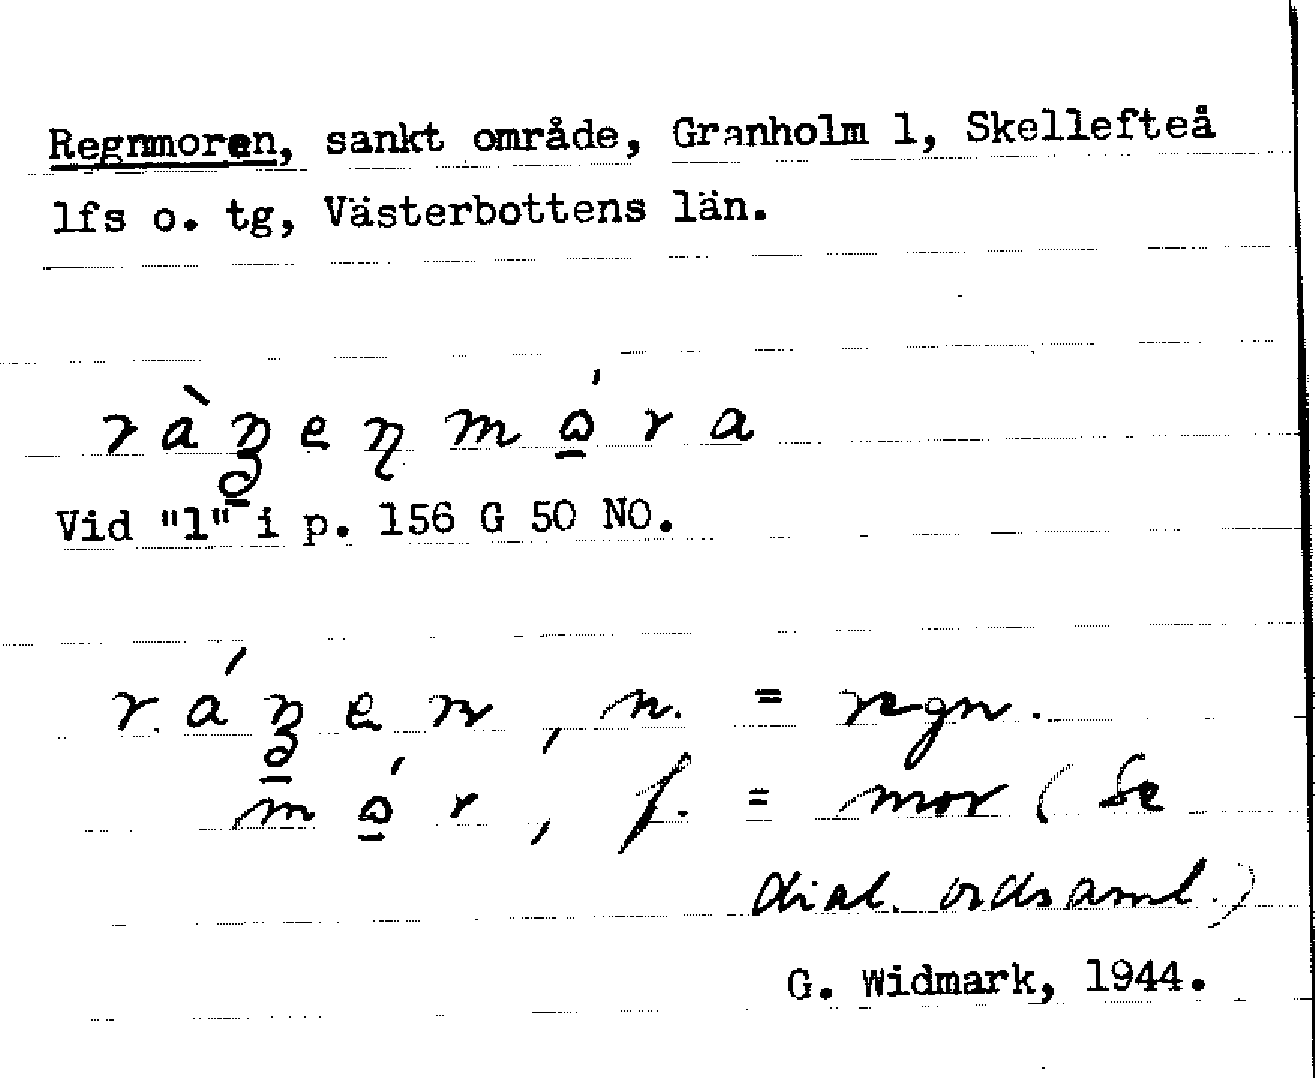 Regnmoren, sankt område, Granholm 1, Skellefteå
lfs o. tg, Västerbottens län.
Vid "l" i p. 156 G 50 NO.
n. = regn.
f. = mor (Se
dial. ordsaml.)
G. Widmark, 1944.